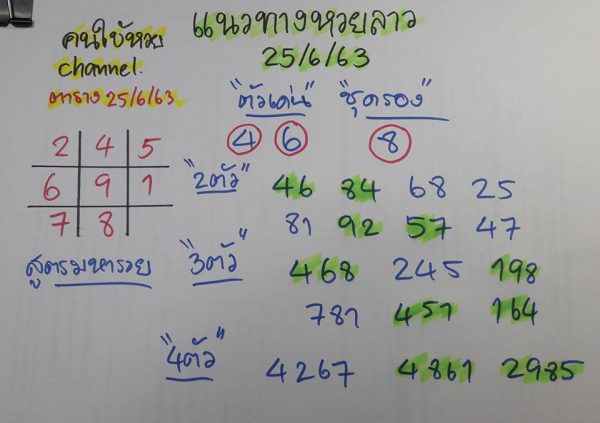 แนวทางหวยลาว
25/6/63
คนใบ้หวย
channel.
ตาราง 25/6/63
"ตัวเด่น" "ชุดรอง"
4 6 8
2 4 5
6 9 1
7 8
สูตรมหารวย
"2ตัว" 46 84 68 25
81 92 57 47
"3ตัว" 468 245 198
781 457 164
"4ตัว" 4267 4861 2985